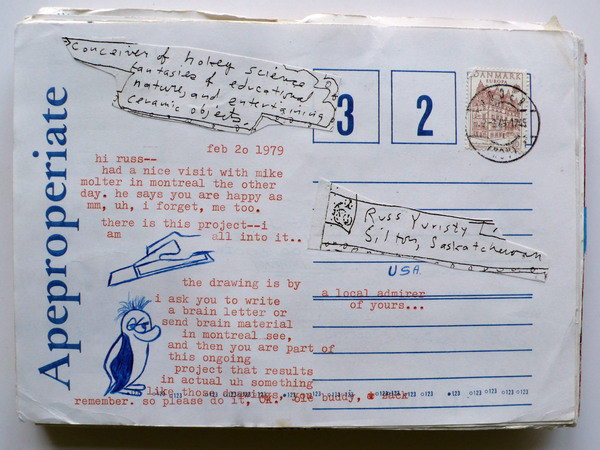 conceiver of hokey science
fantasies of educational
nature and entertaining
ceramic objects.
3 2
DANMARK
EUROPA
Apeproperiate
feb 2o 1979
hi russ--
had a nice visit with mike
molter in montreal the other
day. he says you are happy as
mm, uh, i forget, me too.
there is this project--i
am all into it..
Russ Yuristy
Silton, Saskatchewan
USA.
the drawing is by
a local admirer
of yours...
i ask you to write
a brain letter or
send brain material
in montreal see,
and then you are part of
this ongoing
project that results
in actual uh something
like those drawings, you
remember. so please do it, OK. ole buddy, zack
123 123 123 123 123 123 123